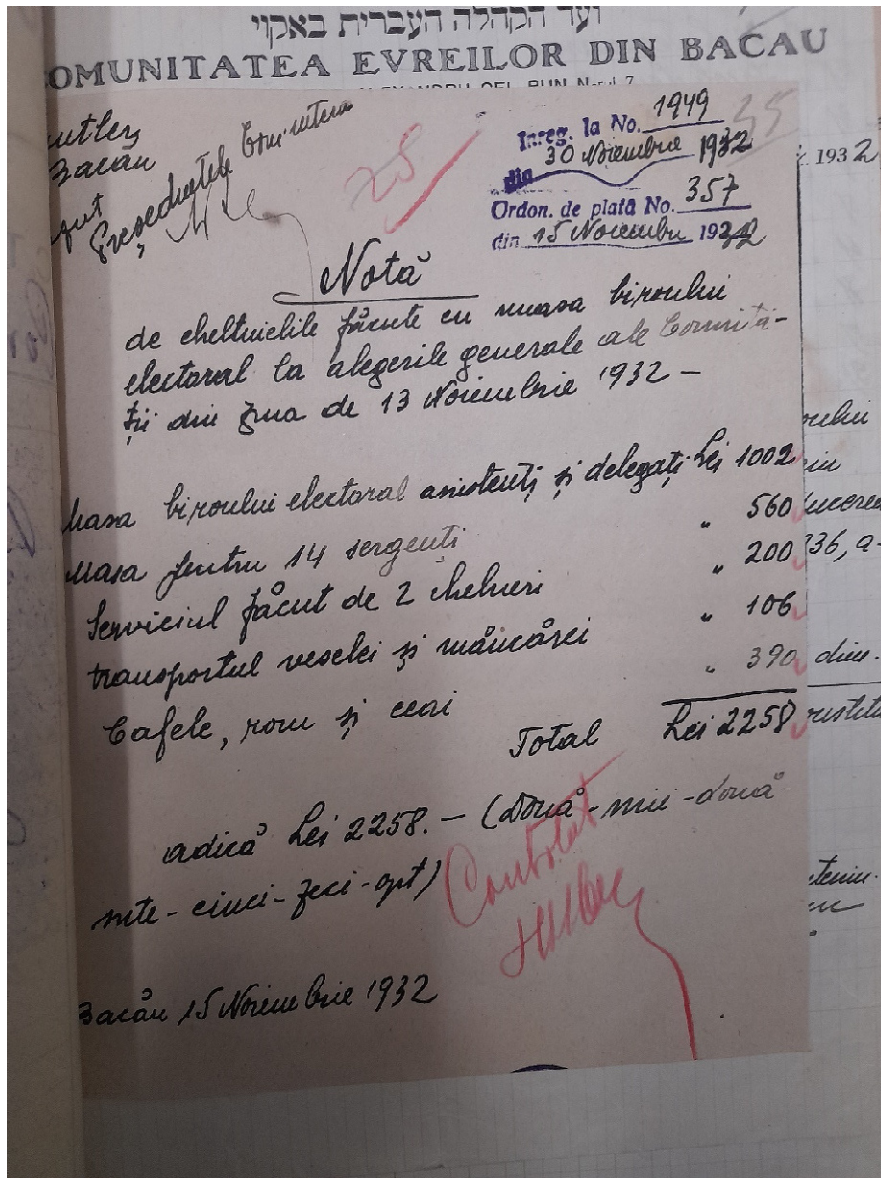 ועד הקהלה העברית באקוי
COMUNITATEA EVREILOR DIN BACAU
Inreg. la No. 1949
din 30 Noiembrie 1932
Ordon. de plată No. 357
din 15 Noiembrie 1932
193 2
Bacău
Președintele Comunitatea
28
Notă
de cheltuielile făcute cu masa biroului
electoral la alegerile generale ale Comunită-
ții din ziua de 13 Noiembrie 1932 –
Masa biroului electoral asistenți și delegați Lei 1002
Masa pentru 14 sergenți " 560
Serviciul făcut de 2 chelneri " 200
transportul veselei și mâncărei " 106
Cafele, rom și ceai " 390
Total Lei 2258
adică Lei 2258. – (Două-mii-două
sute-cinci-zeci-opt)
Controlat
Bacău 15 Noiembrie 1932